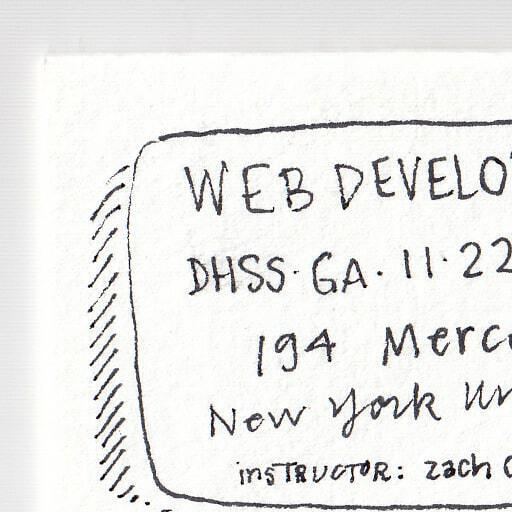 WEB DEVELO
DHSS·GA·11·22
194 Merc
New York Un
instructor: zach